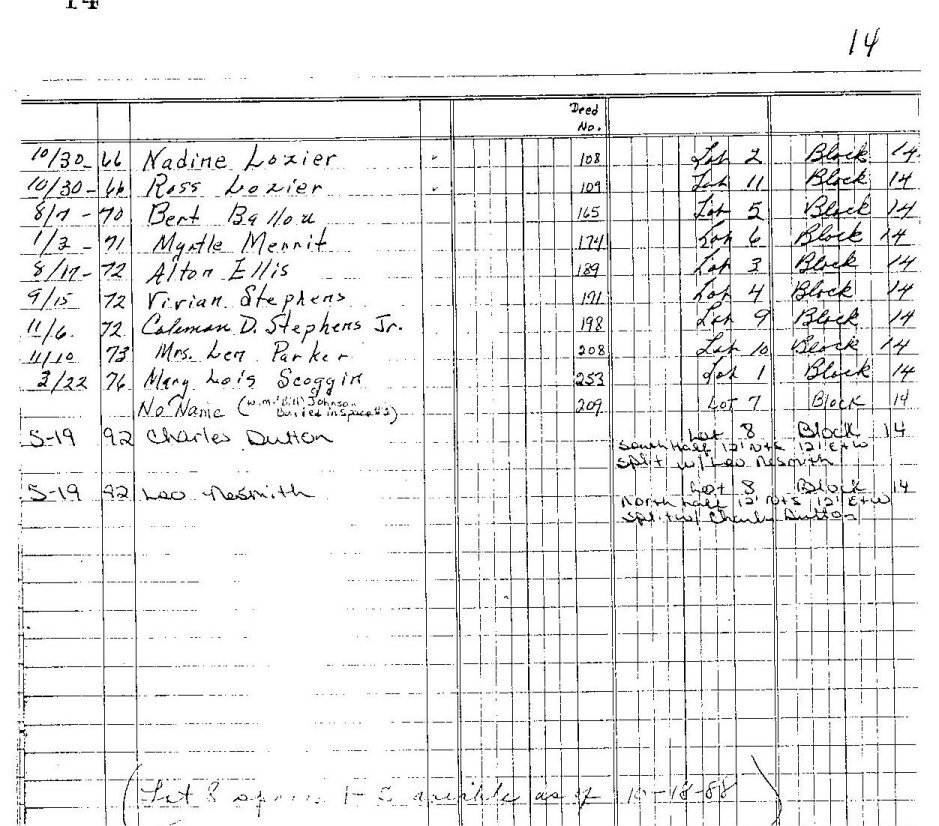 14
14
Deed
No.
10/30-66 Nadine Lozier 108 Lot 2 Block 14
10/30-66 Ross Lozier 109 Lot 11 Block 14
8/7-70 Bert Ballou 165 Lot 5 Block 14
1/2-71 Myrtle Merrit 174 Lot 6 Block 14
8/17-72 Alton Ellis 189 Lot 3 Block 14
9/15 72 Vivian Stephens 191 Lot 4 Block 14
11/6. 72 Coleman D. Stephens Jr. 198 Lot 9 Block 14
11/10 73 Mrs. Len Parker 208 Lot 10 Block 14
2/22 76 Mary Lois Scoggin 253 Lot 1 Block 14
No Name (W.M. (Bill) Johnson 209 LOT 7 Block 14
Buried in space # 3)
5-19 92 Charles Dutton Lot 8 Block 14
South Half 12' N+S 12' E+W
split w/ Leo Nesmith
5-19 92 Leo Nesmith Lot 8 Block 14
North half 12' N+S 12' E+W
split w/ Charles Dutton
(Lot 8 1- as of 10-18-88)